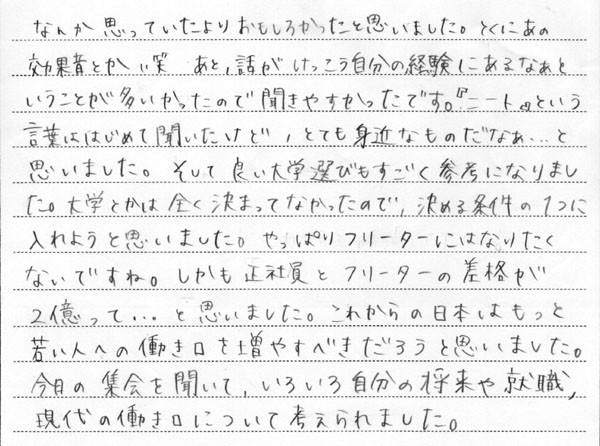 なんか思っていたよりおもしろかったと思いました。とくにあの
効果音とかい笑 あと、話がけっこう自分の経験にあるなぁと
いうことが多いかったので聞きやすかったです。『ニート』という
言葉ははじめて聞いたけど、とても身近なものだなぁ…と
思いました。そして良い大学選びもすごく参考になりまし
た。大学とかは全く決まってなかったので、決める条件の1つに
入れようと思いました。やっぱりフリーターにはなりたく
ないですね。しかも正社員とフリーターの差格が
2億って…と思いました。これからの日本はもっと
若い人への働き口を増やすべきだろうと思いました。
今日の集会を聞いて、いろいろ自分の将来や就職、
現代の働き口について考えられました。